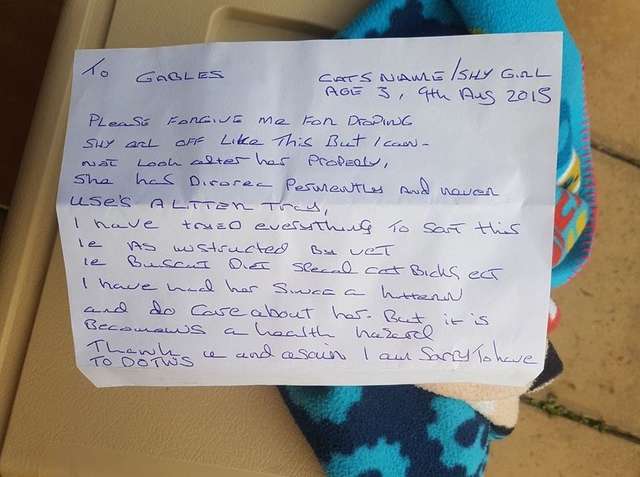 To GABLES
CATS NAME/SHY GIRL
AGE 3, 9th Aug 2015
PLEASE FORGIVE me FOR DROPING
SHY GIRL OFF Like This But I can-
NOT Look after her Properly,
She has Dirorea Permently AND never
USE'S A LITTER Tray,
I have tryed everything To Sort this
ie AS instructed By VET
ie Buscuit Diet Specal cat Bicks ect
I have had her Since a kittern
and do Care about her. But it is
Becomeing a health hazard
Thank u and again I am Sorry To have
TO DO THIS